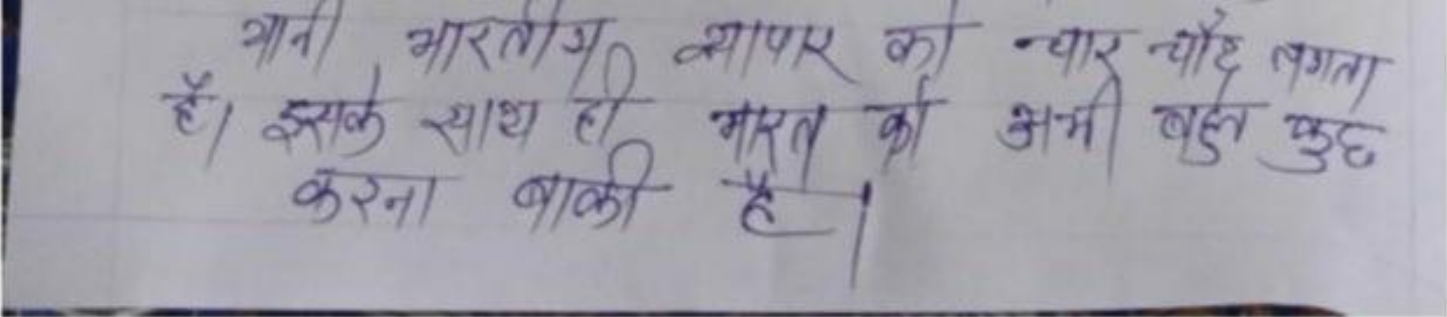 यानी भारतीय व्यापार को चार चाँद लगता
है। इसके साथ ही भारत को अभी बहुत कुछ
करना बाकी है।